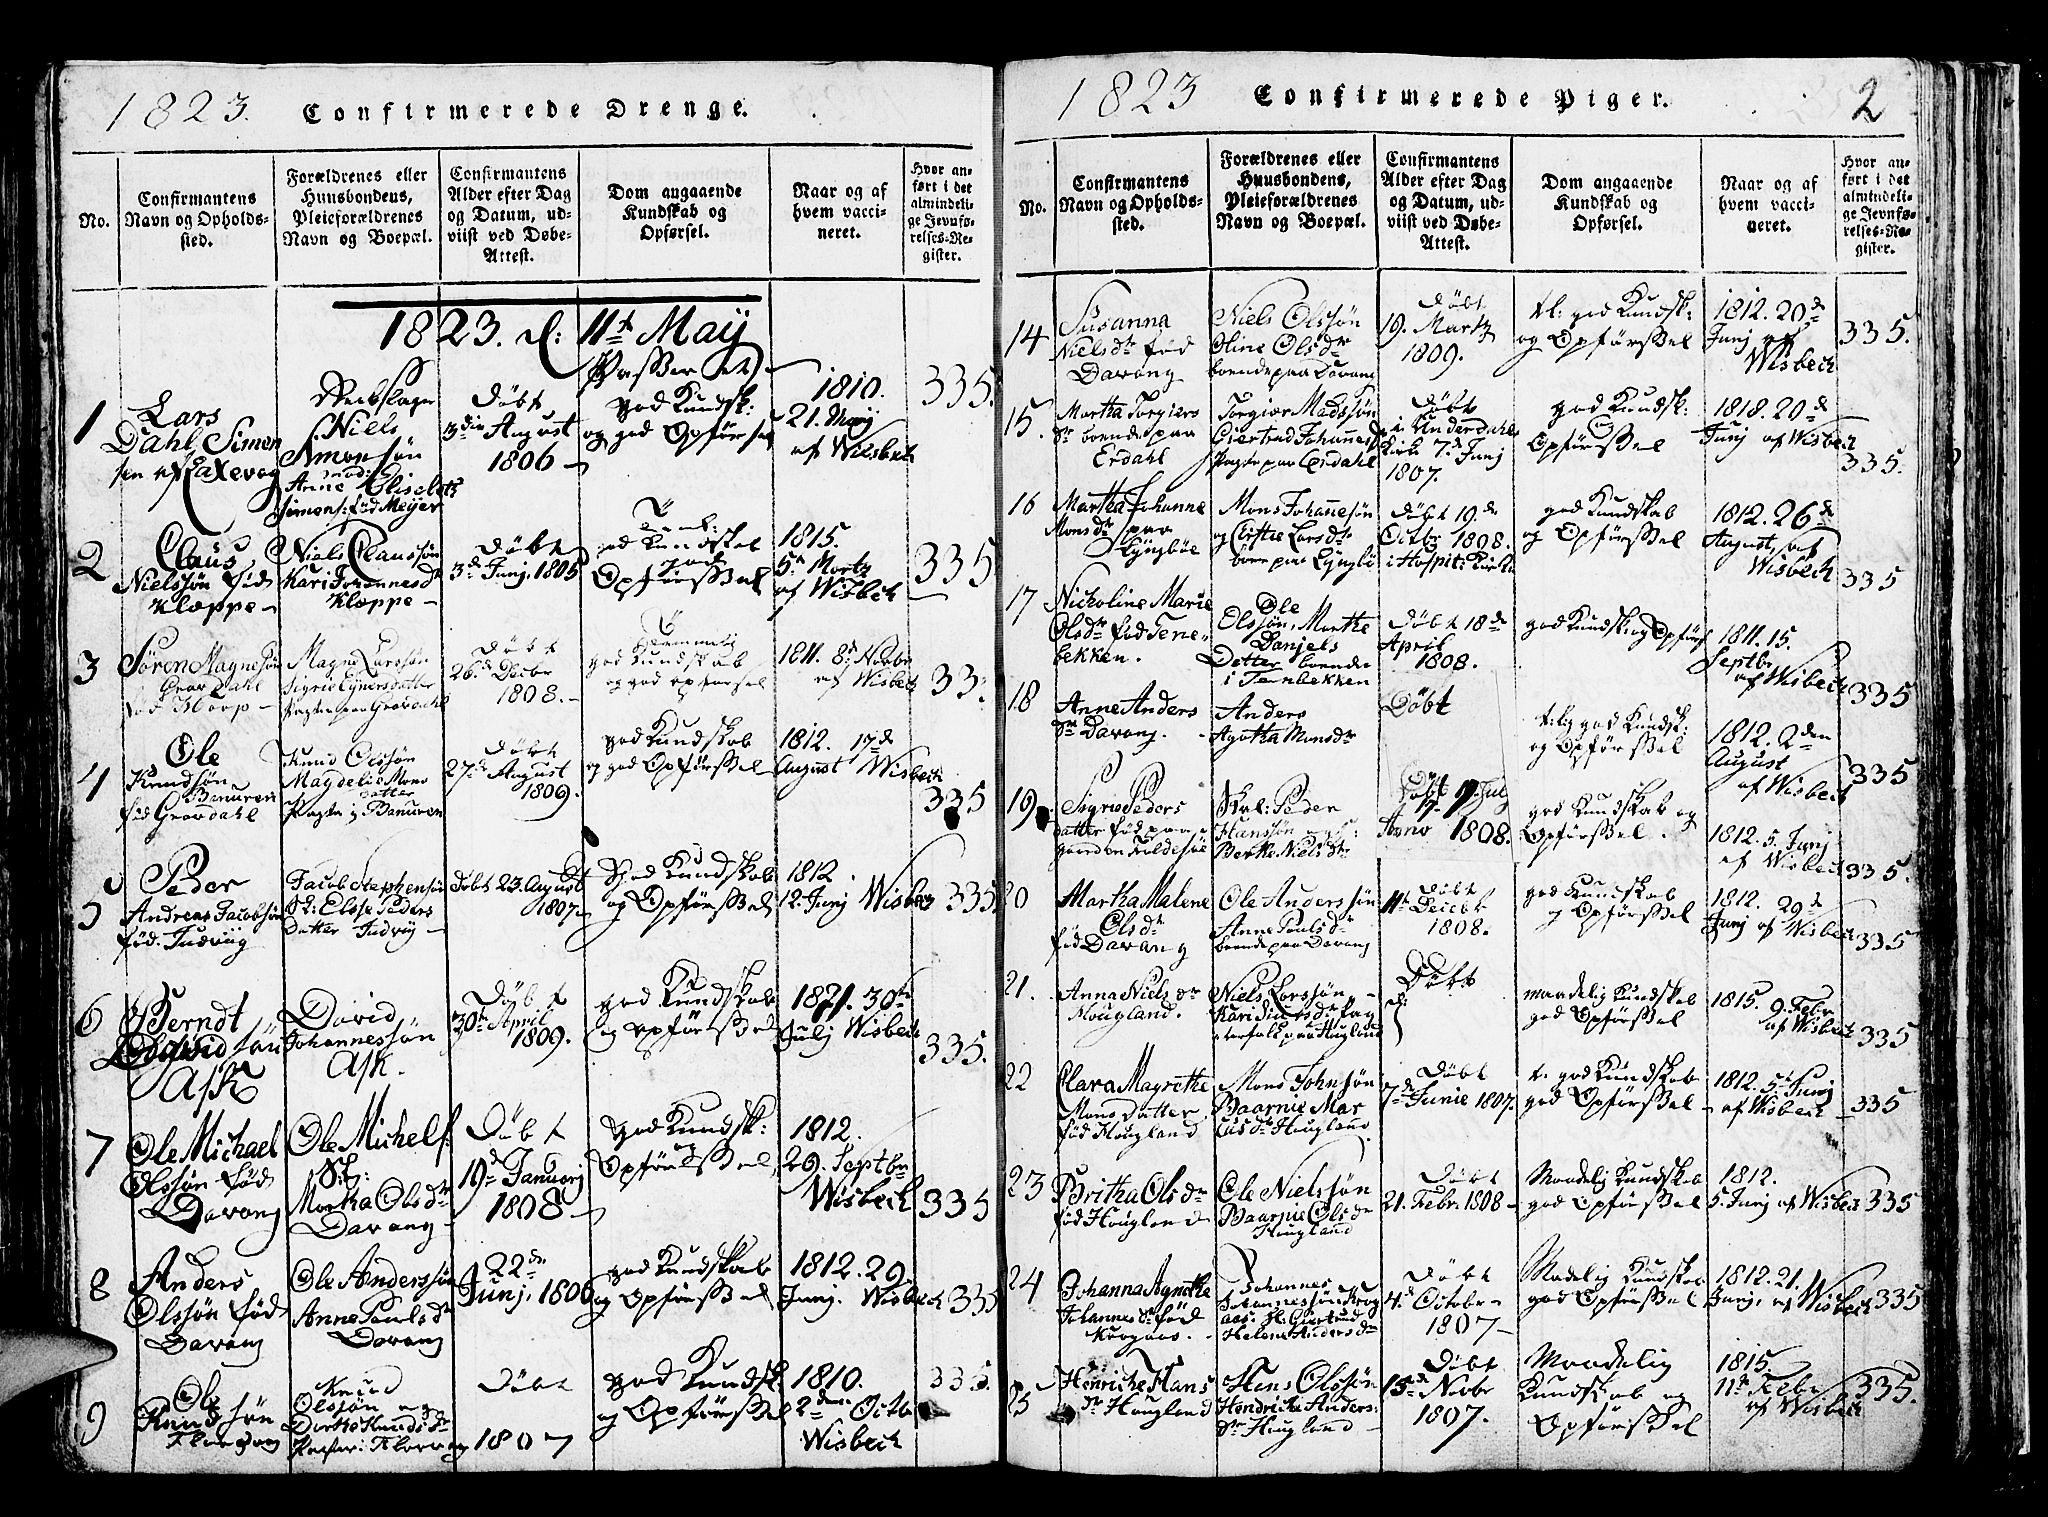 1823. Confirmerede Drenge.
No.
Confirmantens
Navn og Opholds-
sted.
Forældrenes eller
Huusbondens,
Pleieforældrenes
Navn og Boepæl.
Confirmantens
Alder efter Dag
og Datum, ud-
viist ved Døbe-
Attest.
Dom angaaende
Kundskab og
Opførsel.
Naar og af
hvem vacci-
neret.
Hvor an-
ført i det
almindeli-
ge Jevnfø-
relses-Re-
gister.
1823. d: 11te May
1
Lars
Dahl Simon
sen af Laxevog
Niels
Simonsøn
mod:
Anne Elisebet
Simens: fød Meyer
Døbt
3die August
1806
god Kundsk:
og god Opførsel
1810.
21. Maij
af Wisbech
335.
2
Claus
Nielssøn fød
Kloppe
Niels Claussøn
Kari Johannesdr
Kloppe
Døbt
3de Junj. 1805
Temb:
god Kundskab
god
Opførssel
1815.
5te Martz
af Wisbech
335
3
Søren Magnesøn
Grov Dahl
Magne Larssøn
Sigrie Eynersdatter
Døbt
26. Decbr
1808.
temmelig
god Kundskab
og god opførsel
1811. 8de Novbr
af Wisbech
33
4
Ole
Knudsøn
Banuren
fød Grovdahl
Knud Olssøn
Magdelie Mons
datter
Banuren
Døbt
27. August
1809.
god Kundskab
og god Opførssel
1812. 17de
August Wisbech
335
5
Peder
Andreas Jacobsøn
fød. Judviig
Jacob Stephensøn
Elsse Peders
datter Judvig
Døbt 23. August
1807
god Kundskab
og Opførssel
1812
12. Junj Wisbech
335
6
Berndt
Davidsøn
Ask
David
Johannessøn
Ask.
Døbt
30te April
1809.
god Kundskab
og opførssel
1821. 30te
Julj Wisbech
335.
7
Ole Michael
Olssøn fød
Davang
Ole Michels:
Martha Olsdr
Davang
Døbt
19de Januarj
1808
god Kundsk:
og
Opførssel
1812.
29. Septbr
Wisbech
335
8
Anders
Olssøn fød
Davang
Ole Anderssøn
Anne Poulsdr
Davang
22de
Junj. 1806
god Kundskab
og Opførssel
1812. 29.
Junj. Wisbech
335
9
Ole
Knudsøn
Knud
Olssøn og
Dorthe Knudsdr
Døbt
1807
god Kundsk
og Opførssel
1810.
2den Octb
Wisbech
335.
1823 Confirmerede Piger. 2
No.
Confirmantens
Navn og Opholds-
sted.
Forældrenes eller
Huusbondens,
Pleieforældrenes
Navn og Boepæl.
Confirmantens
Alder efter Dag
og Datum, ud-
viist ved Døbe-
Attest.
Dom angaaende
Kundskab og
Opførsel.
Naar og af
hvem vacci-
neret.
Hvor an-
ført i det
almindeli-
ge Jevnfø-
relses-Re-
gister.
14
Susanna
Nielsdr fød
Davang
Niels Olssøn
Oline Olsdr
boende paa Davang
Døbt
19. Martz
1809.
tl: god Kundsk:
og Opførssel
1812. 20de
Junj af
Wisbech
335.
15.
Martha Torgiers
dr boende paa
Erdahl
Torgier Madssøn
Giertrud Johannesd
Døbt
i Underdahls
Kirke 7de Junj
1807.
god Kundsk:
og
Opførssel
1818. 20de
Junj af Wisbech
335.
16
Martha Johanne
Monsdr paa
Lyngbøe
Mons Johannesøn
og Christie Larsdr
boen paa Lyngbø
Døbt 19.de
Octbr 1808.
i Hospit: Kirke
god Kundskab
og Opførssel
1812. 26de
August, af
Wisbech
335
17
Nicholine Marie
Olsdr fød Tene
bekken.
Ole
Olssøn, Marthe
Danjels
Datter boende
i Tenebekken
Døbt 18de
April
1808.
god Kundsk: og Opførs
1811. 15.
Septbr
af Wisbech
335
18
Anne Anders
dr Davang.
Anders
Agotha Monsdr
Døbt
t:lig god Kundsk:
og Opførssel
1812. 2den
August
af Wisbech
335
19
Sigrie Peders
datter fød paa
gaarden Toldesøe
Peder
Hanssøn
Berte Nielsdr
Døbt
17. Julj
Anno 1808.
god Kundskab og
Opførssel.
1812. 5. Junj
af Wisbech
335.
20
Martha Malene
Olsdr
fød Davang
Ole Anderssøn
Anne Poulsdr
boende paa Davang
Døbt
11te Decebr
1808.
god Kundskab
og Opførssel
1812. 29de
Junj af Wisbech
335
21.
Anna Nielsdr
Hougland.
Niels Larssøn
Døbt
d:
maadelig Kundskab
god Opførssel
1815. 9. Febr
af Wisbech
335
22
Clara Magrethe
Mons Datter
fød Hougland
Mons Johnsøn
Baarnie Mar
cusdr Hougland
Døbt
7de Junie 1807.
t. god Kundskab
god Opførssel
1812. 5te Junj
af Wisbech
335
23
Britha Olsdr
fød Hougland
Ole Nielssøn
Baarnie Olsdr
Hougland
Døbt
21. Febr. 1808
Maadelig Kundskab
god Opførssel
1812.
5. Junj af Wisbech
335
24
Johanna Agnethe
Johannesdr fød
Johannes
Johannessøn
Helene Andersdr
Døbt
4de October
1807
Madelig Kundskab
god Opførssel
1812. 21.
Junj, af Wisbech
335
25
Henriche Hans
dr Hougland
Hans Olssøn
Hendriche Anders:
dr Hougland
Døbt
15de Novbr
1807.
Maadelig
Kundskab og
Opførssel
1815.
11te Febr
af Wisbech
335.